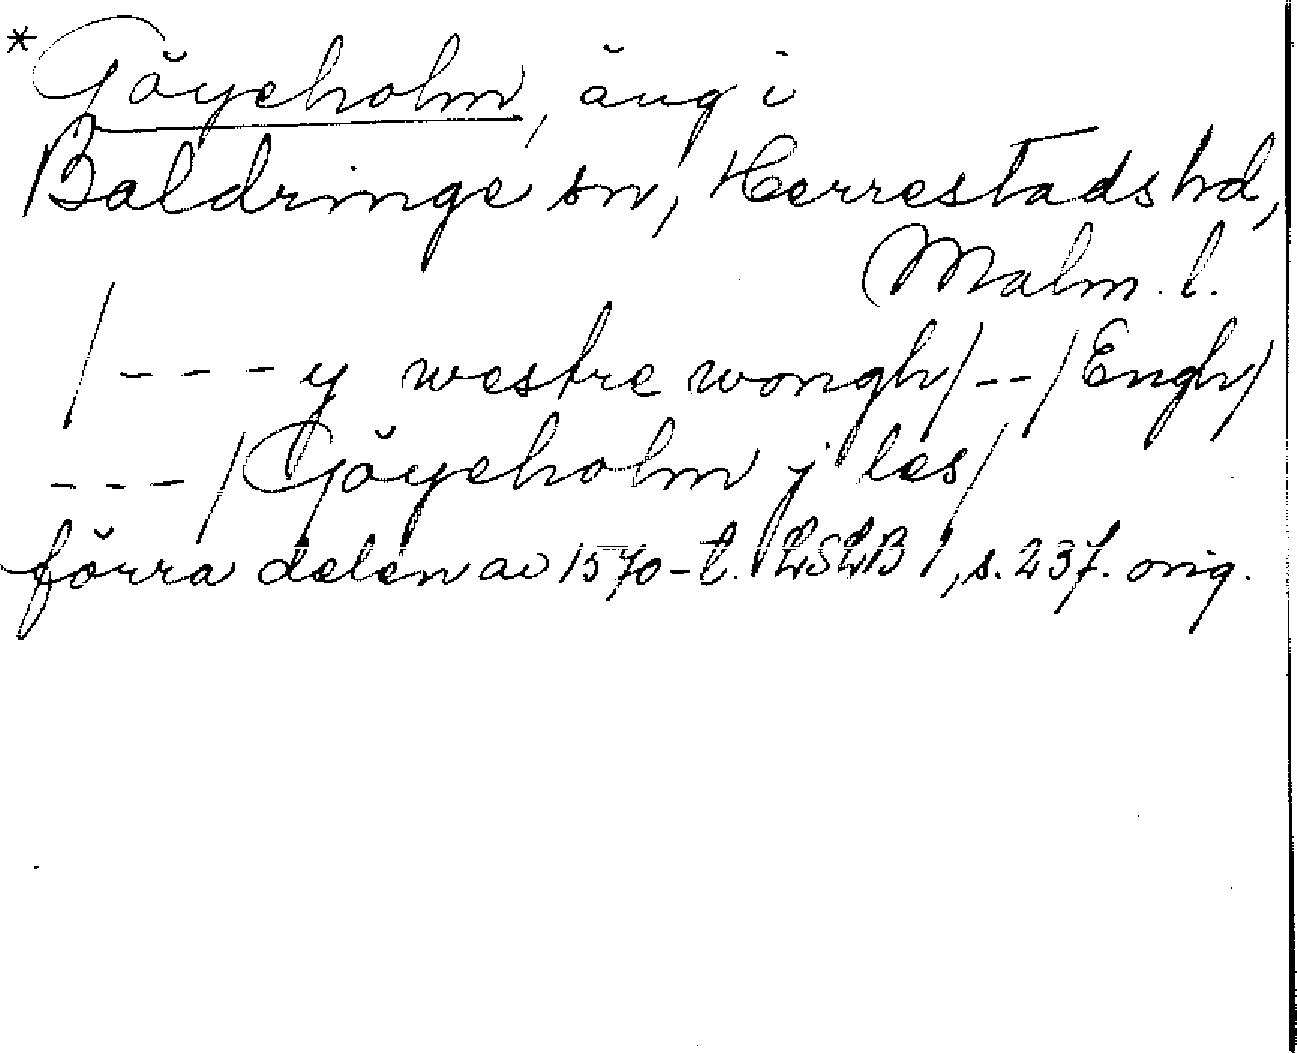 *Göyeholm, äng i
Baldringe sn, Herrestads hd,
Malm. l.
/---y westre wongh/--/Engh/
---/Göyeholm j les/
förra delen av 1570-t. LSLB 1, s. 237. orig.